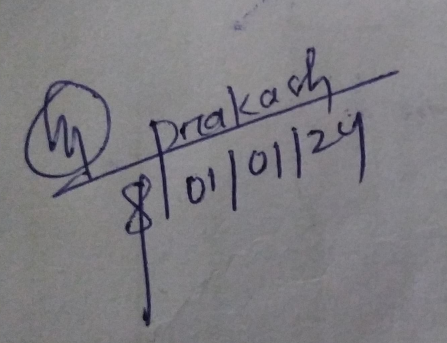 prakash
8/01/01/24